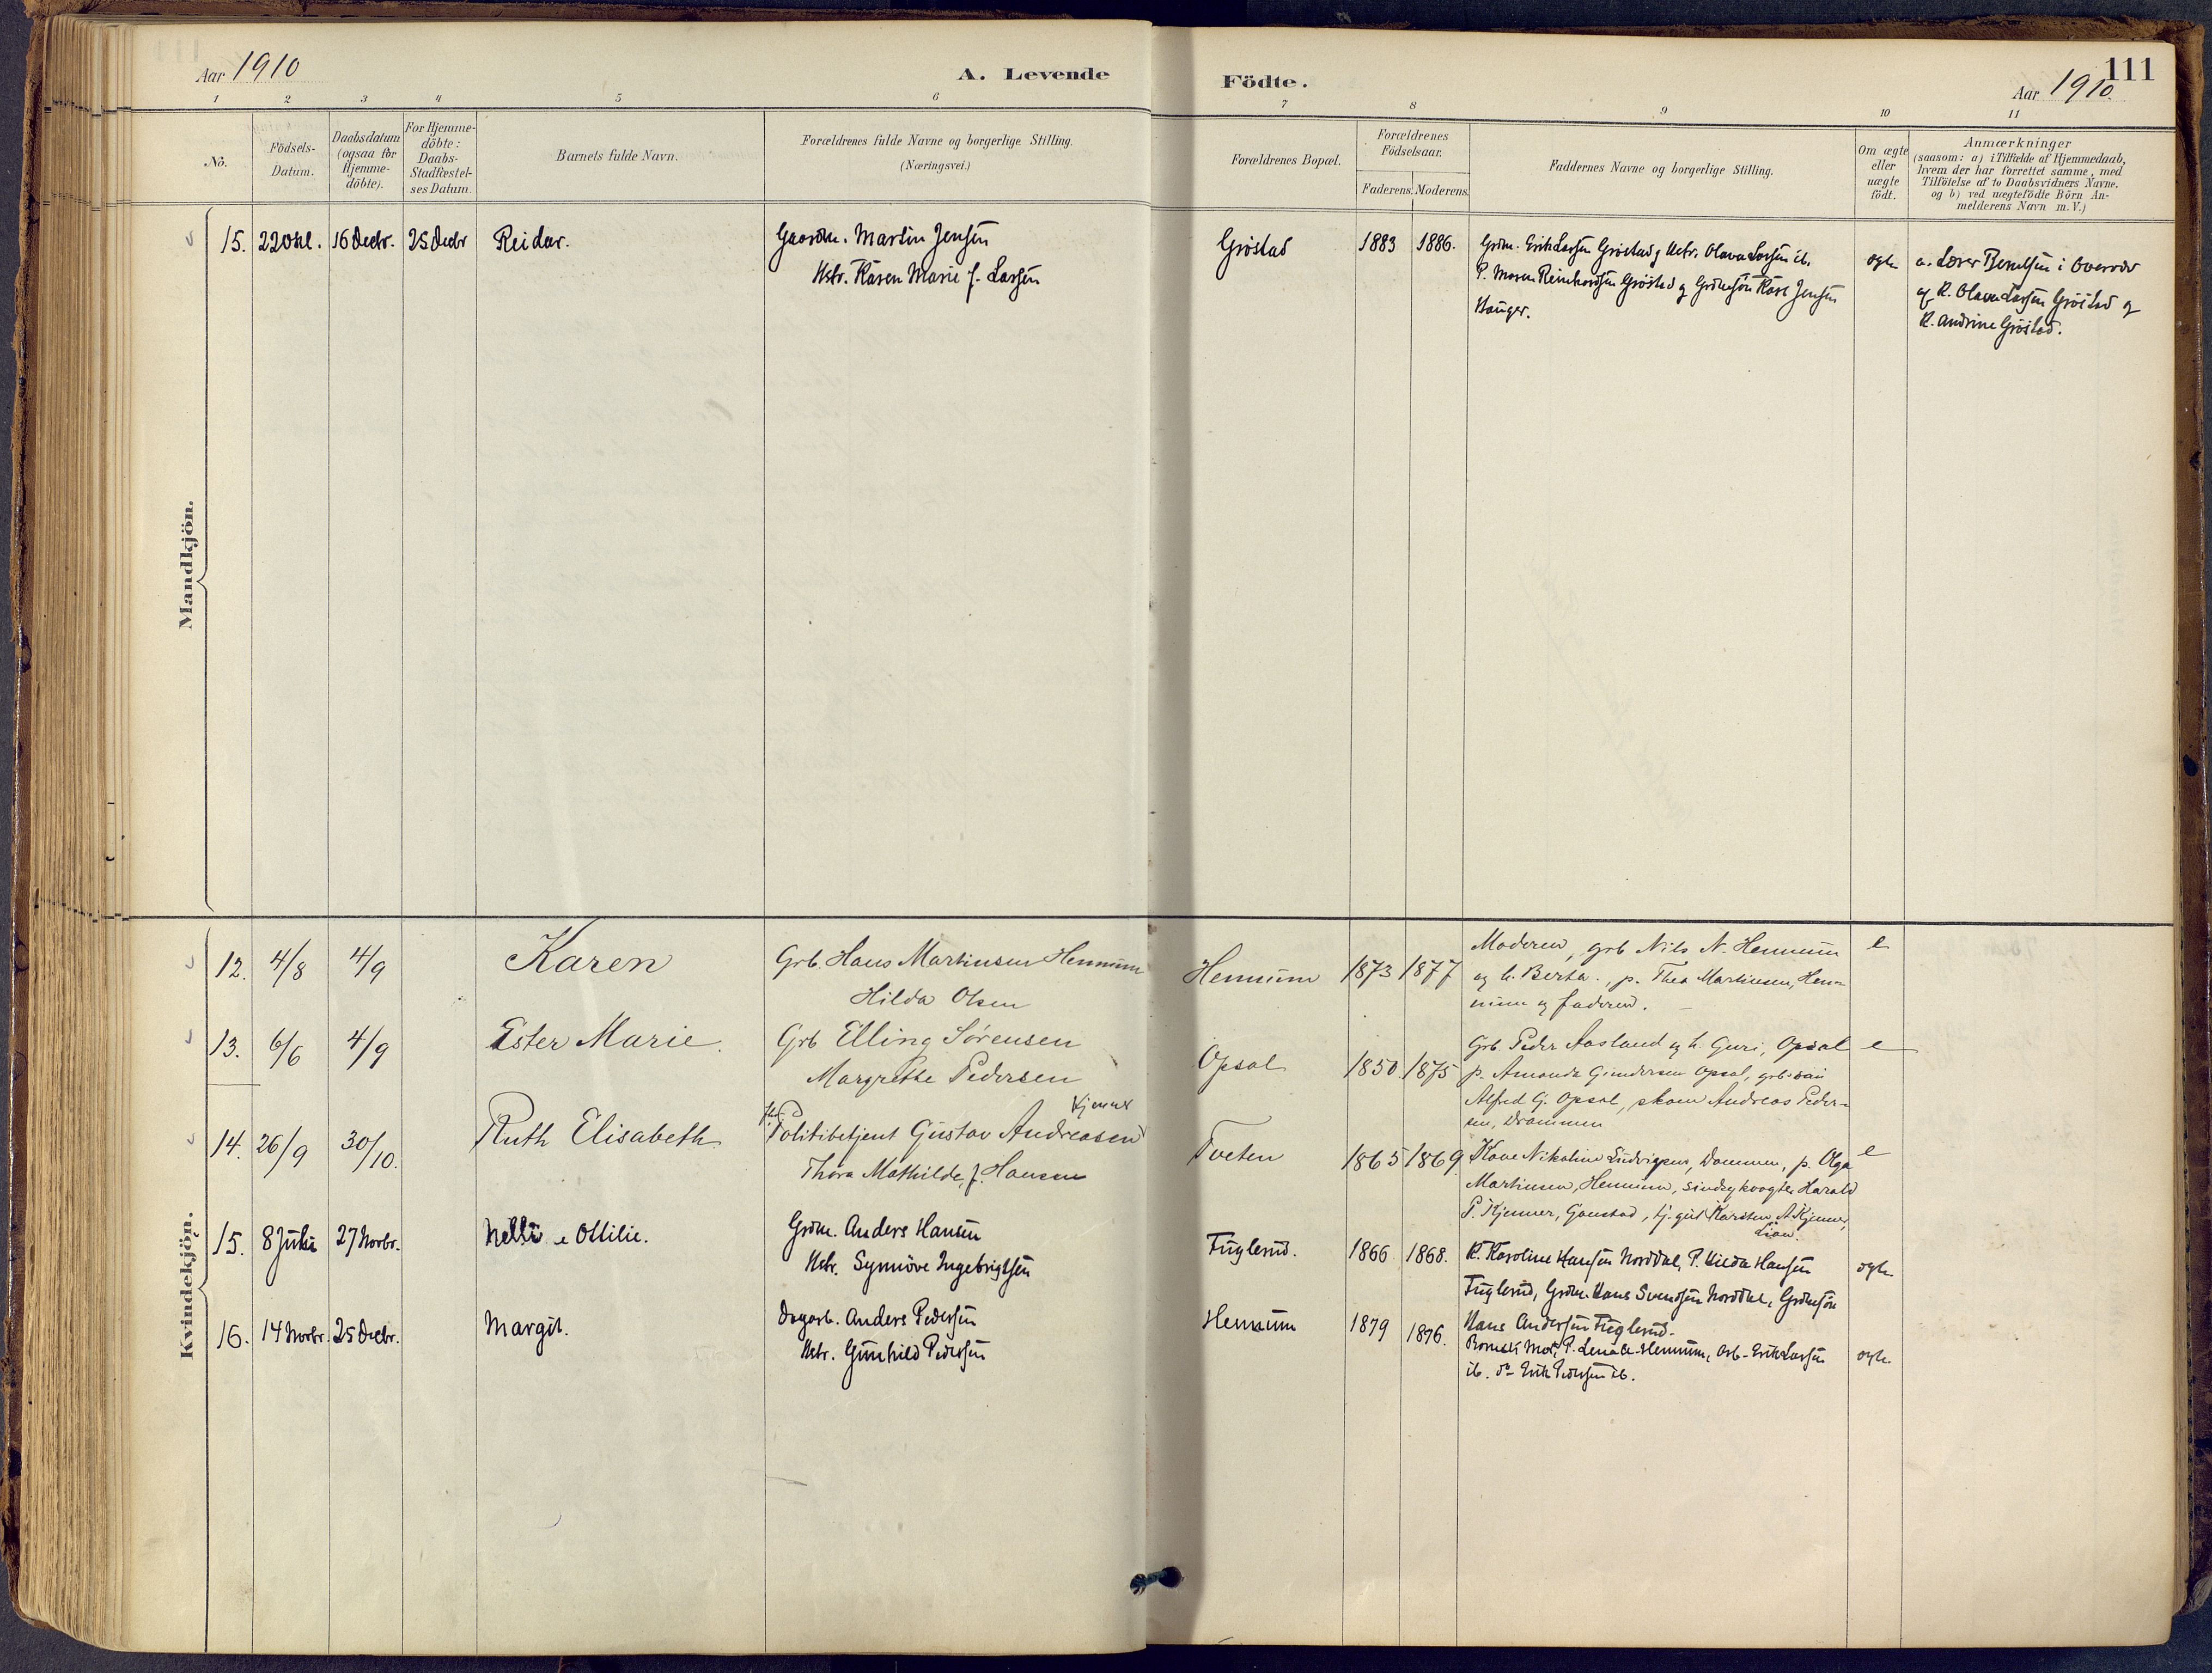 Aar 1910
A. Levende
Födte.
111
Aar 1910.
1 2 3 4 5 6 7 8 9 10 11
No.
Födsels-
Datum.
Daabsdatum
(ogsaa for
Hjemme-
döbte).
For Hjemme-
döbte:
Daabs-
Stadfæstel-
ses Datum.
Barnets fulde Navn.
Forældrenes fulde Navne og borgerlige Stilling.
(Næringsvei.)
Forældrenes Bopæl.
Forældrenes
Födselsaar.
Faderens. Moderens.
Faddernes Navne og borgerlige Stilling.
Om ægte
eller
uægte
födt.
Anmærkninger
(saasom: a) i Tilfælde af Hjemmedaab,
hvem der har forrettet samme, med
Tilföielse af to Daabsvidners Navne.
og b) ved uægtefödte Börn An-
melderens Navn m.V.)
Mandkjön.
15. 22 Okt. 16 Decbr. 25 Decbr Reidar.
Gaardm. Martin Jensen
Hstr. Karen Marie f. Larsen
Gröstad 1883 1886.
Grdm. Erik Larsen Gröstad, Hstr. Olava Larsen ib.
P. Maren Reinhardsen Gröstad og Grdmsön Karl Jensen
Hauger.
egte
a. Lærer Berntsen i Overvær
af K. Olava Larsen Gröstad og
K. Andrine Gröstad.
Kvindekjön.
12. 4/8 4/9 Karen
Grb. Hans Martinsen Hennum
Hilda Olsen
Hennum 1873 1877
Moderen, grb Nils N. Hennum
og h. Berta, p. Thea Martinsen, Hen-
num og faderen.
e
13. 6/6 4/9 Ester Marie.
Grb Elling Sørensen
Margrethe Pedersen
Opsal 1850. 1875
Grb. Peder Aasland og h. Guri, Opsal
p. Amanda Gundersen Opsal, grb.
Alfred G. Opsal, skom Andreas Peder-
sen, Drammen
e
14. 26/9 30/10. Ruth Elisabeth
Politibetjent Gustav Andreasen Kjenner
Thora Mathilde, f. Hansen
Tveten 1865 1869
Kone Nikoline Ludvigsen, Dammen, p. Olga
Martinsen, Hennum, sindsygvogter Harald
P. Kjenner, Gaustad, tj. gut Karsten A. Kjenner,
Lian.
e
15. 8 Juli 27 Novbr. Nelli Ottilie.
Grdm. Anders Hansen
Hstr. Synnöve Ingebrigtsen
Fuglerud. 1866 1868.
K. Karoline Hansen Norddal, P. Hilda Hansen
Fuglerud, Grdm. Hans Svendsen Norddal, Grdmsön
Hans Andersen Fuglerud.
egte
16. 14 Novbr. 25 Decbr. Margit.
Dagarb. Anders Pedersen
Hstr. Gunhild Pedersen
Hennum 1879 1876.
Barnets Mor, P. Lena Hennum, Arb. Erik Larsen
ib. do Erik Pedersen ib.
egte